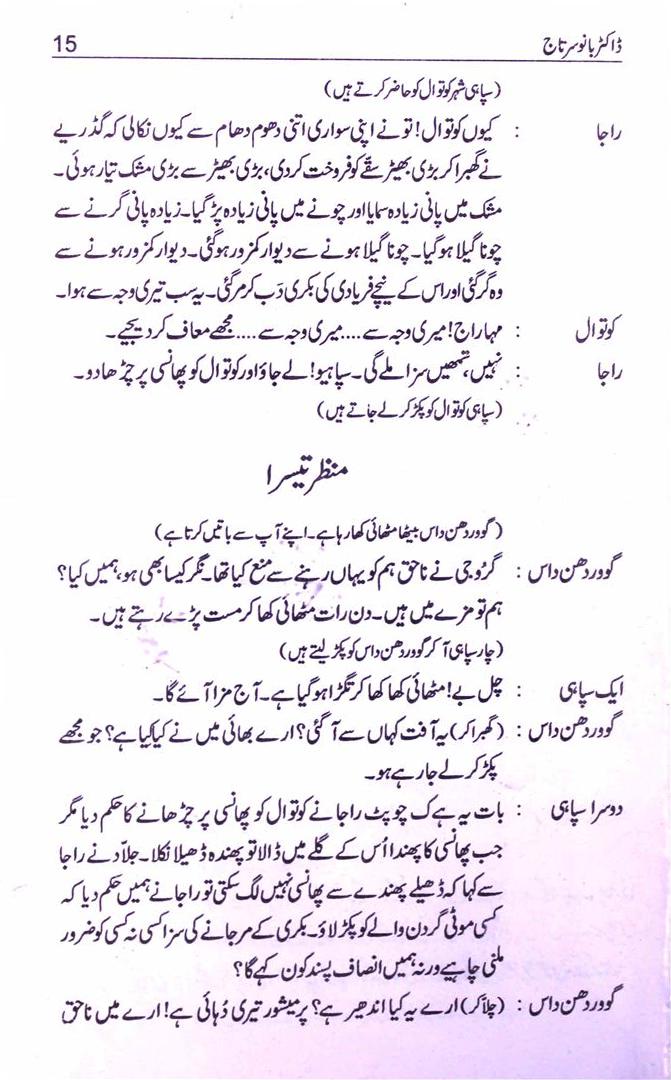 ڈاکٹر بانو سرتاج 15
(سپاہی شہر کوتوال کو حاضر کرتے ہیں)
راجا : کیوں کوتوال! تو نے اپنی سواری اتنی دھوم دھام سے کیوں نکالی کہ گڈریے
نے گھبرا کر بڑی بھیڑ سقّے کو فروخت کر دی، بڑی بھیڑ سے بڑی مشک تیار ہوئی۔
مشک میں پانی زیادہ سمایا اور چونے میں پانی زیادہ پڑ گیا۔ زیادہ پانی گرنے سے
چونا گیلا ہو گیا۔ چونا گیلا ہونے سے دیوار کمزور ہو گئی۔ دیوار کمزور ہونے سے
وہ گر گئی اور اس کے نیچے فریادی کی بکری دَب کر مر گئی۔ یہ سب تیری وجہ سے ہوا۔
کوتوال : مہاراج! میری وجہ سے .... میری وجہ سے .... مجھے معاف کر دیجیے۔
راجا : نہیں، تمھیں سزا ملے گی۔ سپاہیو! لے جاؤ اور کوتوال کو پھانسی پر چڑھا دو۔
(سپاہی کوتوال کو پکڑ کر لے جاتے ہیں)
منظر تیسرا
(گووردھن داس بیٹھا مٹھائی کھا رہا ہے۔ اپنے آپ سے باتیں کرتا ہے)
گووردھن داس : گرُوجی نے ناحق ہم کو یہاں رہنے سے منع کیا تھا۔ نگر کیسا بھی ہو، ہمیں کیا؟
ہم تو مزے میں ہیں۔ دن رات مٹھائی کھا کر مست پڑے رہتے ہیں۔
(چار سپاہی آ کر گووردھن داس کو پکڑ لیتے ہیں)
ایک سپاہی : چل بے! مٹھائی کھا کھا کر تگڑا ہو گیا ہے۔ آج مزا آئے گا۔
گووردھن داس : (گھبرا کر) یہ آفت کہاں سے آ گئی؟ ارے بھائی میں نے کیا کِیا ہے؟ جو مجھے
پکڑ کر لے جا رہے ہو۔
دوسرا سپاہی : بات یہ ہے ک چوپٹ راجا نے کوتوال کو پھانسی پر چڑھانے کا حکم دیا مگر
جب پھانسی کا پھندا اُس کے گلے میں ڈالا تو پھندہ ڈھیلا نکلا۔ جلاّد نے راجا
سے کہا کہ ڈھیلے پھندے سے پھانسی نہیں لگ سکتی تو راجا نے ہمیں حکم دیا کہ
کسی موٹی گردن والے کو پکڑ لاؤ۔ بکری کے مر جانے کی سزا کسی نہ کسی کو ضرور
ملنی چاہیے ورنہ ہمیں انصاف پسند کون کہے گا؟
گووردھن داس : (چلّا کر) ارے یہ کیا اندھیر ہے؟ پرمیشور تیری دُہائی ہے! ارے میں ناحق